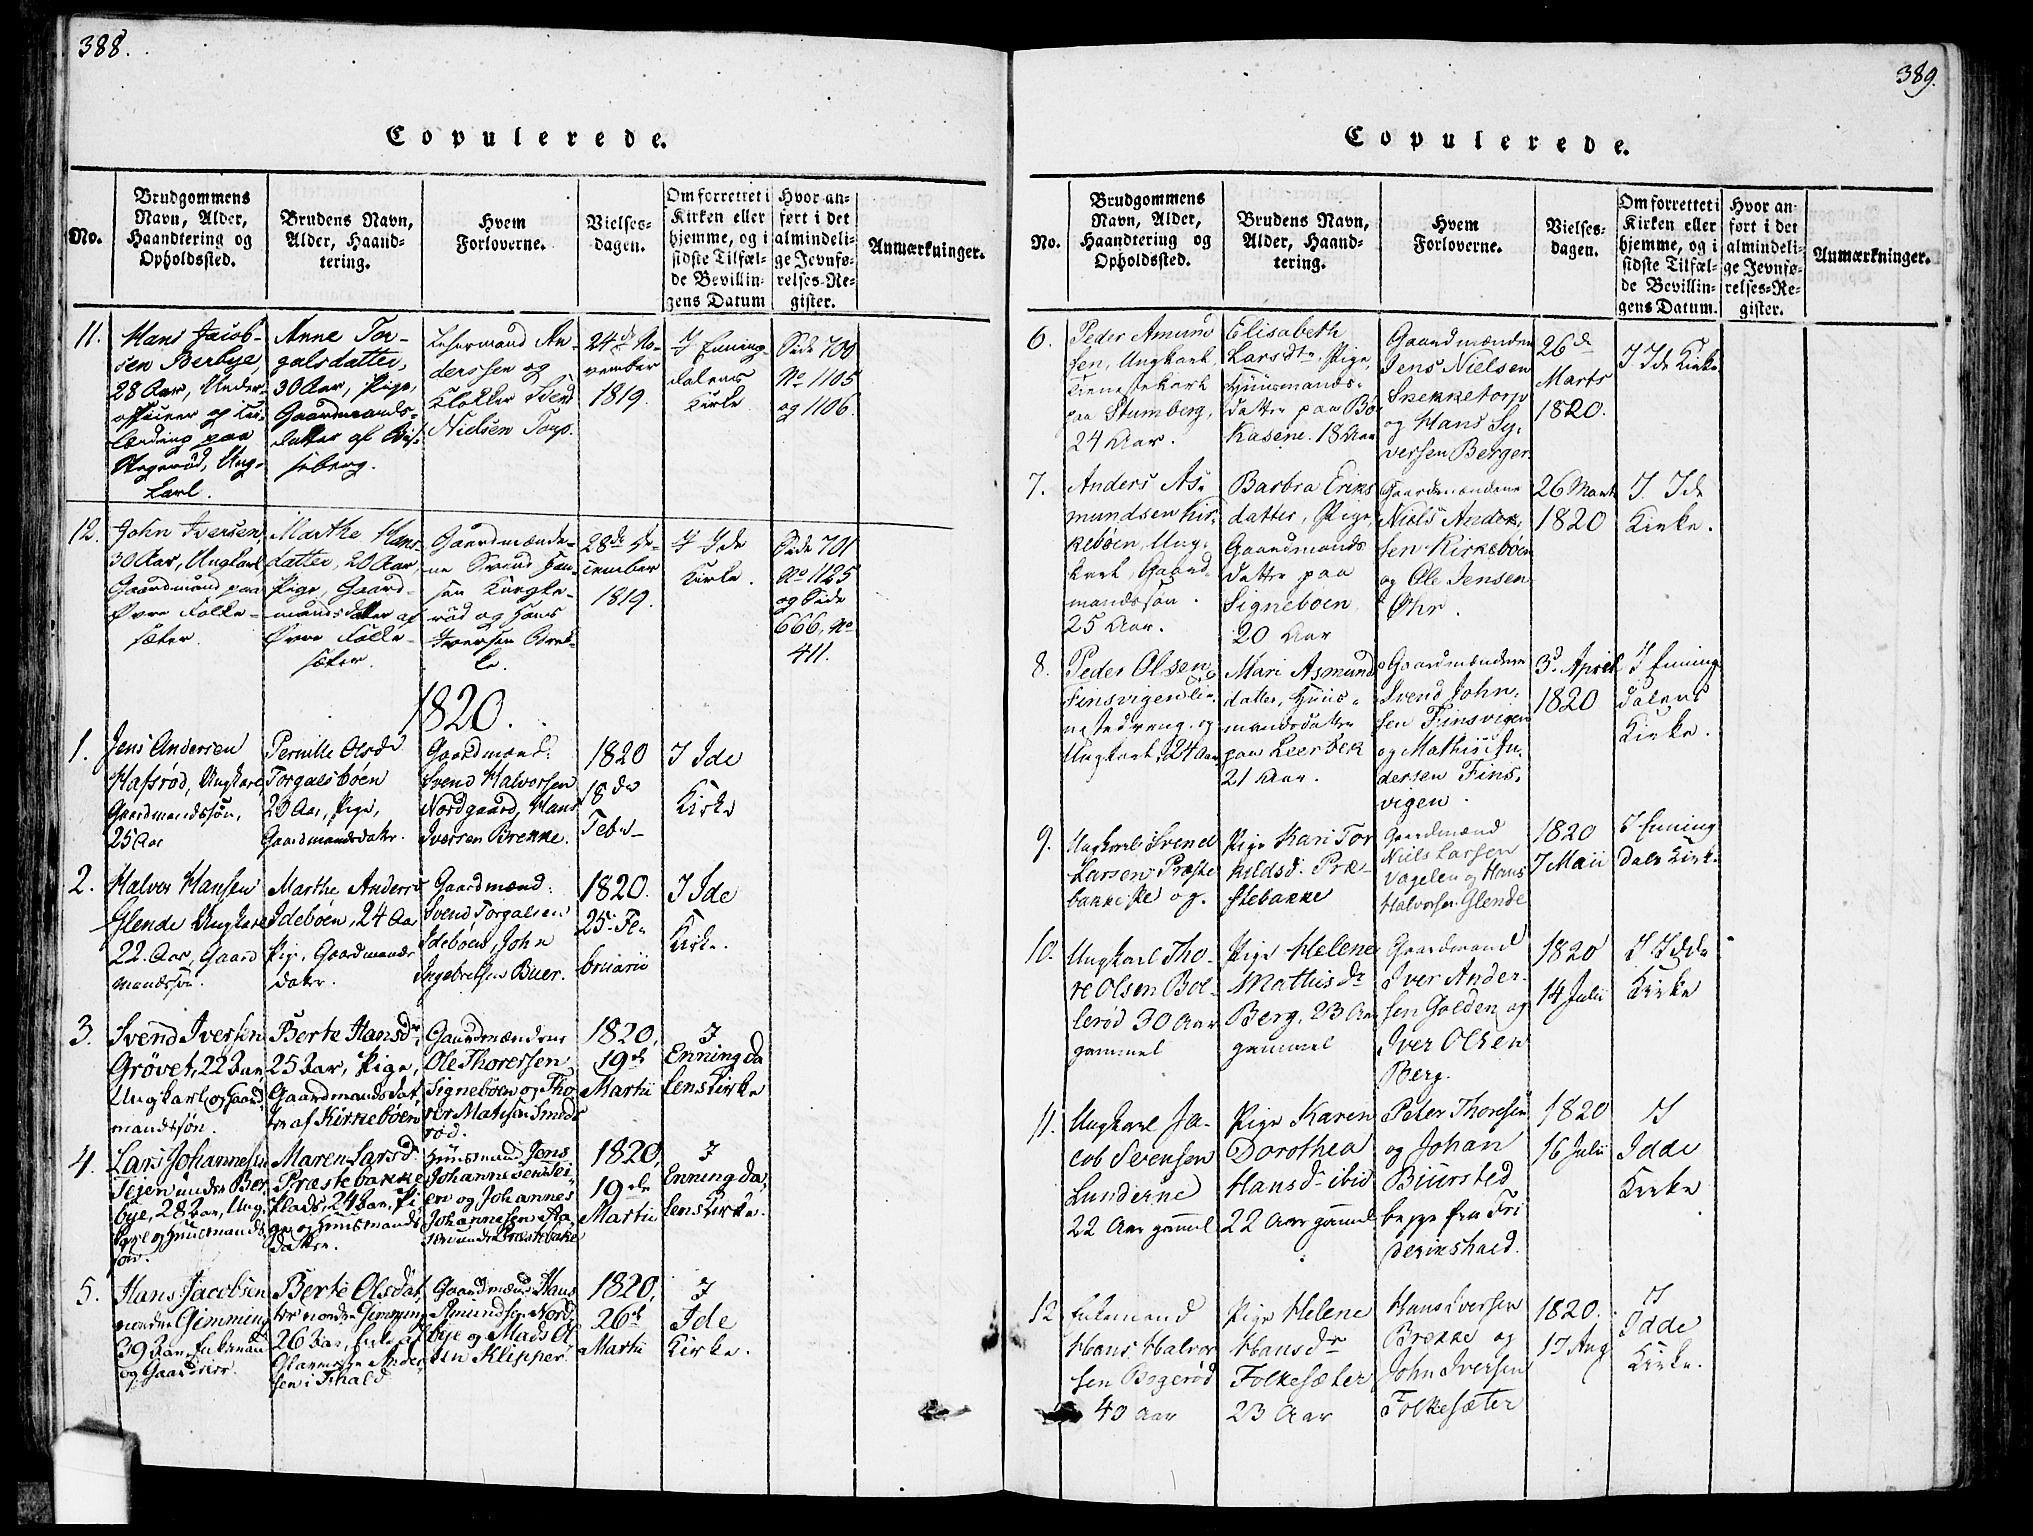 388.
Copulerede.
No.
Brudgommens
Navn, Alder,
Haandtering og
Opholdssted.
Brudens Navn,
Alder, Haand-
tering.
Hvem
Forloverne.
Vielses-
dagen.
Om forrettet i
Kirken eller
hjemme, og i
sidste Tilfæl-
de Bevillin-
gens Datum
Hvor an-
ført i det
almindeli-
ge Jevnfø-
relses-Re-
gister.
Anmærkninger.
11.
Hans Jacob-
sen Berbye,
28 Aar, Under-
officeer og
paa
Ung-
karl.
Anne Tor-
galsdatter,
30 Aar, Pige,
Gaardmands-
datter af
seberg.
An-
derssen og
Klokker Svend
Nielsen Torp.
24de No-
vember
1819.
I Enning-
dalens
Kirke.
Side 700
No 1105
og 1106.
12.
John Iversen,
30 Aar, Ungkarl
Gaardmand paa
Øvre Folke-
sæter.
Marthe Hans-
datter, 20 Aar,
Pige, Gaard-
mandsdatter af
Øvre Folke-
sæter.
Gaardmænde-
ne Svend
sen
rød og Hans
Iversen Brek-
ke.
28de De-
cember
1819.
I Ide
Kirke.
Side 701
No 1125
og Side
666, No
411.
1820.
1.
Jens Andersen
Hafsrød, Ungkarl,
Gaardmandssøn,
25 Aar
Pernille Olsdr
Torgalsbøen
20 Aar, Pige,
Gaardmandsdatr.
Gaardmænd:
Svend Halvorsen
Nordgaard, Hans
Iversen Brekke.
1820
18de
Febr
I Ide
Kirke
2.
Halvor Hansen
Glende Ungkarl
22 Aar, Gaard
mandssøn.
Marthe Andersd
Idebøen, 24 Aar
Pige, Gaardmands
datter.
Gaardmænd:
Svend Torgalsen
Idebøen, John
Ingebretsen Buer.
1820.
25. Fe-
bruarii
I Ide
Kirke.
3.
Svend Iversen
Grøvet, 22 Aar
Ungkarl og Gaard
mandssøn.
Berte Hansdr,
25 Aar, Pige,
Gaardmandsdat
ter af Kirkebøen
Gaardmændene
Ole Thorersen
Signebøen og Tho
rer Matisen Smeds
rød.
1820,
19de
Martii
I
Enningda
lens Kirke
4.
Lars Johannesen
Teien under Ber
bye, 28 Aar, Ung
karl og Huusmands
søn.
Maren Larsd.
Præstebakke
Plads, 24 Aar, Pi
ge og Huusmands
datter.
Huusmand Jens
Johannesen Tei-
en og Johannes
Johannesen
under Præstebakke
1820,
19de
Martii
I
Enningda,
lens Kirke.
5.
Hans Jacobsen
nordre Gimming
39 Aar, Enkemand
og Gaardbruger
Berte Olsdat,
ter nordre Gimming
26 Aar, Enke efter
Ander
sen i Frhald
Gaardmænd Hans
Amundsen Nord,
bye og Mads Ol
sen Klipper.
1820,
26de
Martii
I
Ide
Kirke.
389.
Copulerede.
No.
Brudgommens
Navn, Alder,
Haandtering og
Opholdssted.
Brudens Navn,
Alder, Haand-
tering.
Hvem
Forloverne.
Vielses-
dagen.
Om forrettet i
Kirken eller
hjemme, og i
sidste Tilfæl-
de Bevillin-
gens Datum.
Hvor an-
ført i det
almindeli-
ge Jevnfø-
relses-Re-
gister.
Anmærkninger.
6.
Peder Amund
sen, Ungkarl,
Tienestekarl
paa Stumberg,
24 Aar.
Elisabeth
Larsdtr, Pige,
Huusmands-
datter paa Bø-
kasene. 18 Aar
Gaardmændene
Jens Nielsen
Skekketorp
og Hans Sy-
versen Berger.
26de
Marts
1820.
I Ide Kirke
7.
Anders As-
mundsen Kir-
kebøen, Ung-
karl, Gaard-
mandssøn.
25 Aar.
Barbra Eriks
datter, Pige,
Gaardmands
datter paa
Signebøen
20 Aar
Gaardmændene
Niels Ander-
sen Kirkebøen
og Ole Jensen
Øhr.
26 Marts
1820
I Ide
Kirke.
8.
Peder Olsen
Finsvigen Tie-
nestedreng og
Ungkarl, 24 Aar
Mari Asmunds
datter, Huus-
mandsdatter
paa Leerbek
21 Aar.
Gaardmændene
Svend John-
sen Finsvigen
og Mathis An-
dersen Fins-
vigen.
3d April
1820
I Enning
dalens
Kirke.
9.
Ungkarl Svend
Larsen Præste
bakke
Pige Kari Tor
kildsd. Præ-
stebakke
Gaardmænd
Niels Larsen
Vagelen og Hans
Halvorsen Glende
1820
7 Maii
I Enning
dals Kirke
10.
Ungkarl Tho-
re Olsen Bol-
lerød 30 Aar
gammel
Pige Helene
Mathisdr
Berg, 23 Aar
gammel
Gaardmænd
Iver Ander-
sen Golden og
Iver Olsen
Berg.
1820
14 Julii
I Idde
Kirke
11.
Ungkarl Ja-
cob Svensen
Lunderne
22 Aar gamel
Pige Karen
Dorothea
Hansdr ibid
22 Aar gamel
Peter Thoresen
og Johan
Biørsted
begge fra Fri
derikshald.
1820
16 Julii
I
Idde
Kirke
12
Enkemand
Hans Halvor
sen Bøgerød
40 Aar
Pige Helene
Hansdr
Folkesæter
23 Aar
Hans Iversen
Brekke og
John Iversen
Folkesæter
1820.
17 Aug
I
Idde
Kirke.